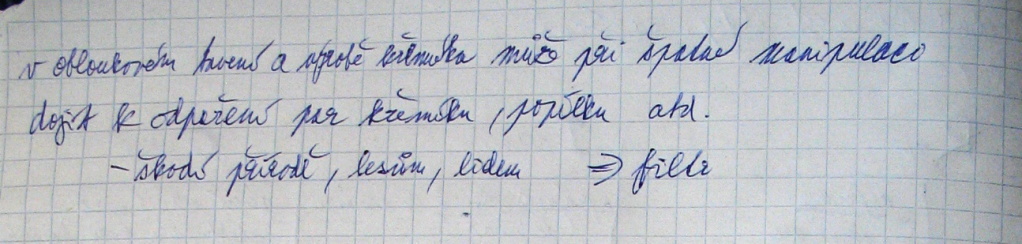 v obloukovém tavení a výrobě křemíku může při špatné manipulaci
dojít k odpaření par křemíku, popílku atd.
- škodí přírodě, lesům, lidem ⇒ filtr